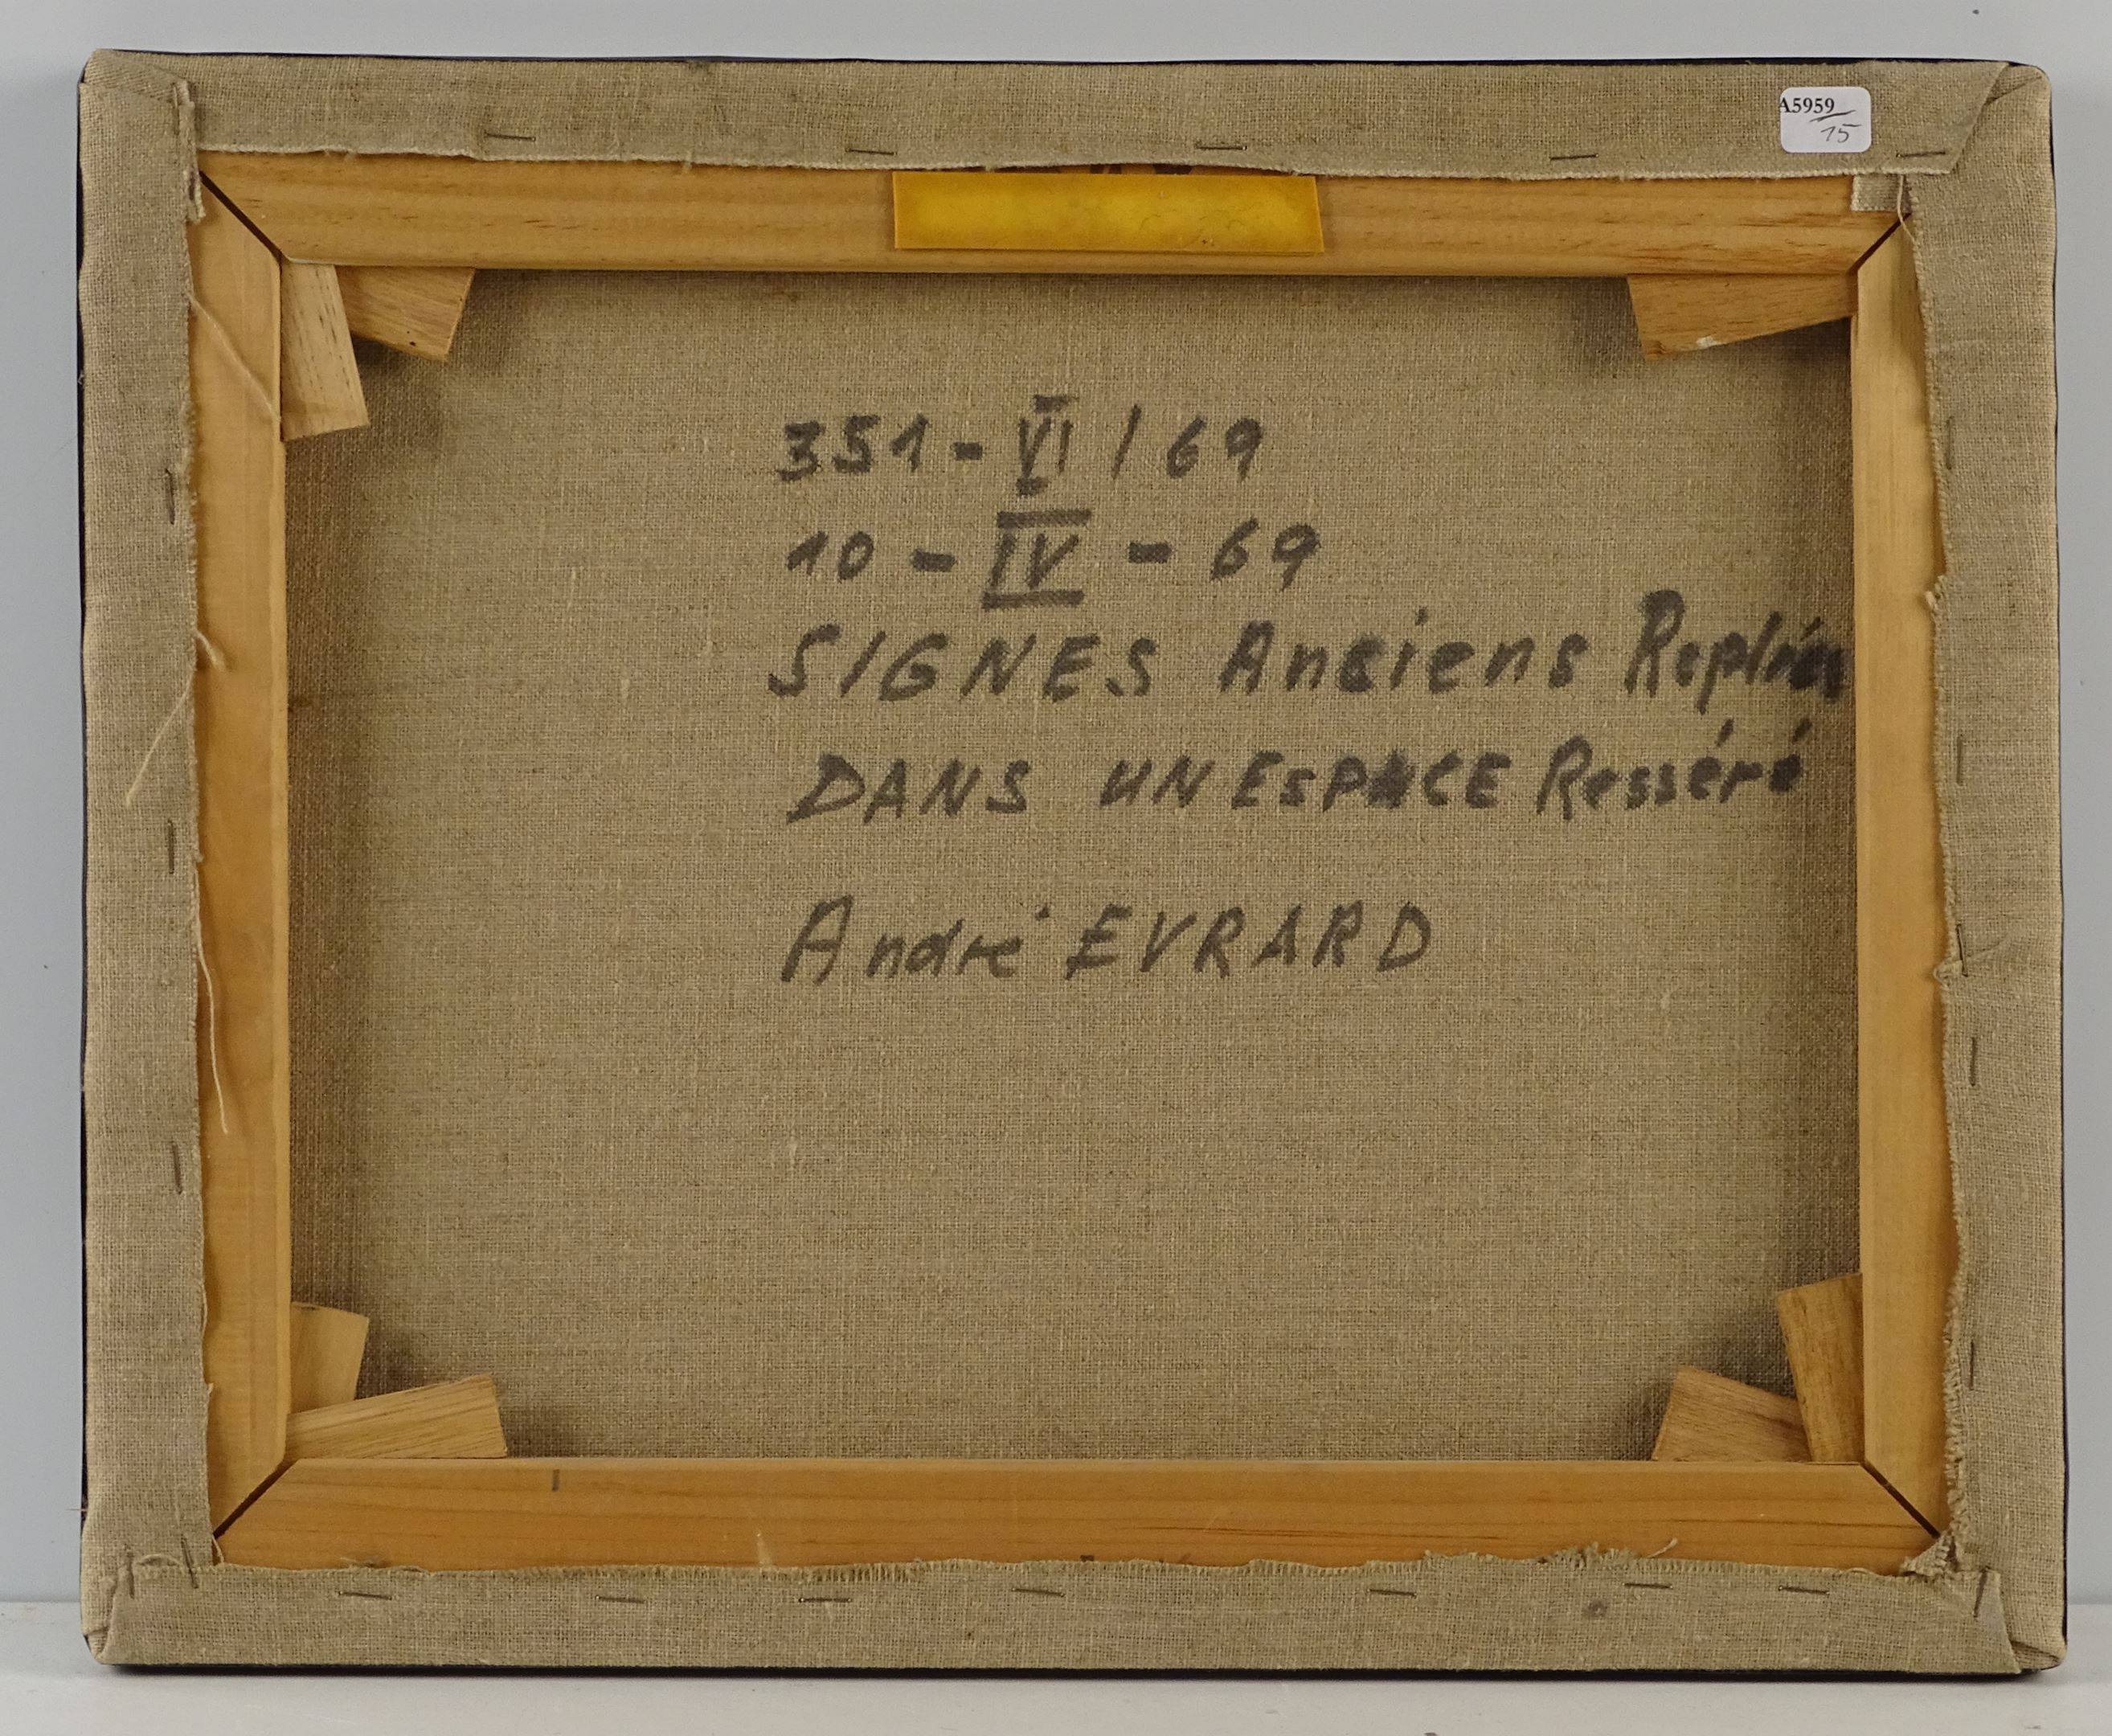 A5959
15
351 - VI / 69
10 - IV - 69
SIGNES Anciens Repliés
DANS UN ESPACE Resséré
André EVRARD